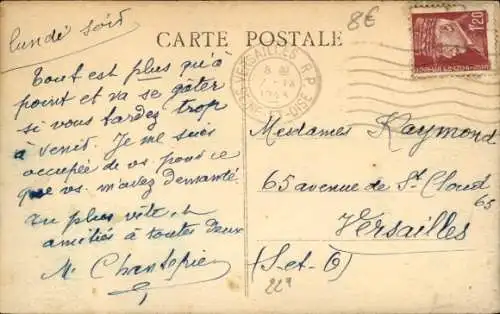 lundi soir
8€
CARTE POSTALE
1F20
VERSAILLES R.P.
SNE-ET-OISE
Tout est plus qu'à
point et va se gâter
si vous tardez trop
à venir. Je me suis
occupée de vs. pour ce
que vs. m'avez demandé
Au plus vite, et
amitiés à toutes deux
M. Chantepie
Mesdames Raymond
65 avenue de St. Cloud
65
Versailles
(S-et-O)
229